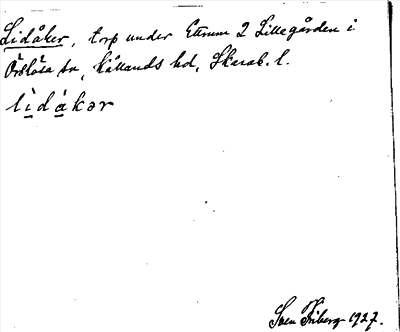 Lidåker, torp under Ettum 2 Lillegården i
Örslösa sn, Kållands hd, Skarab. l.
lìdàkər
Sven Friberg 1927.